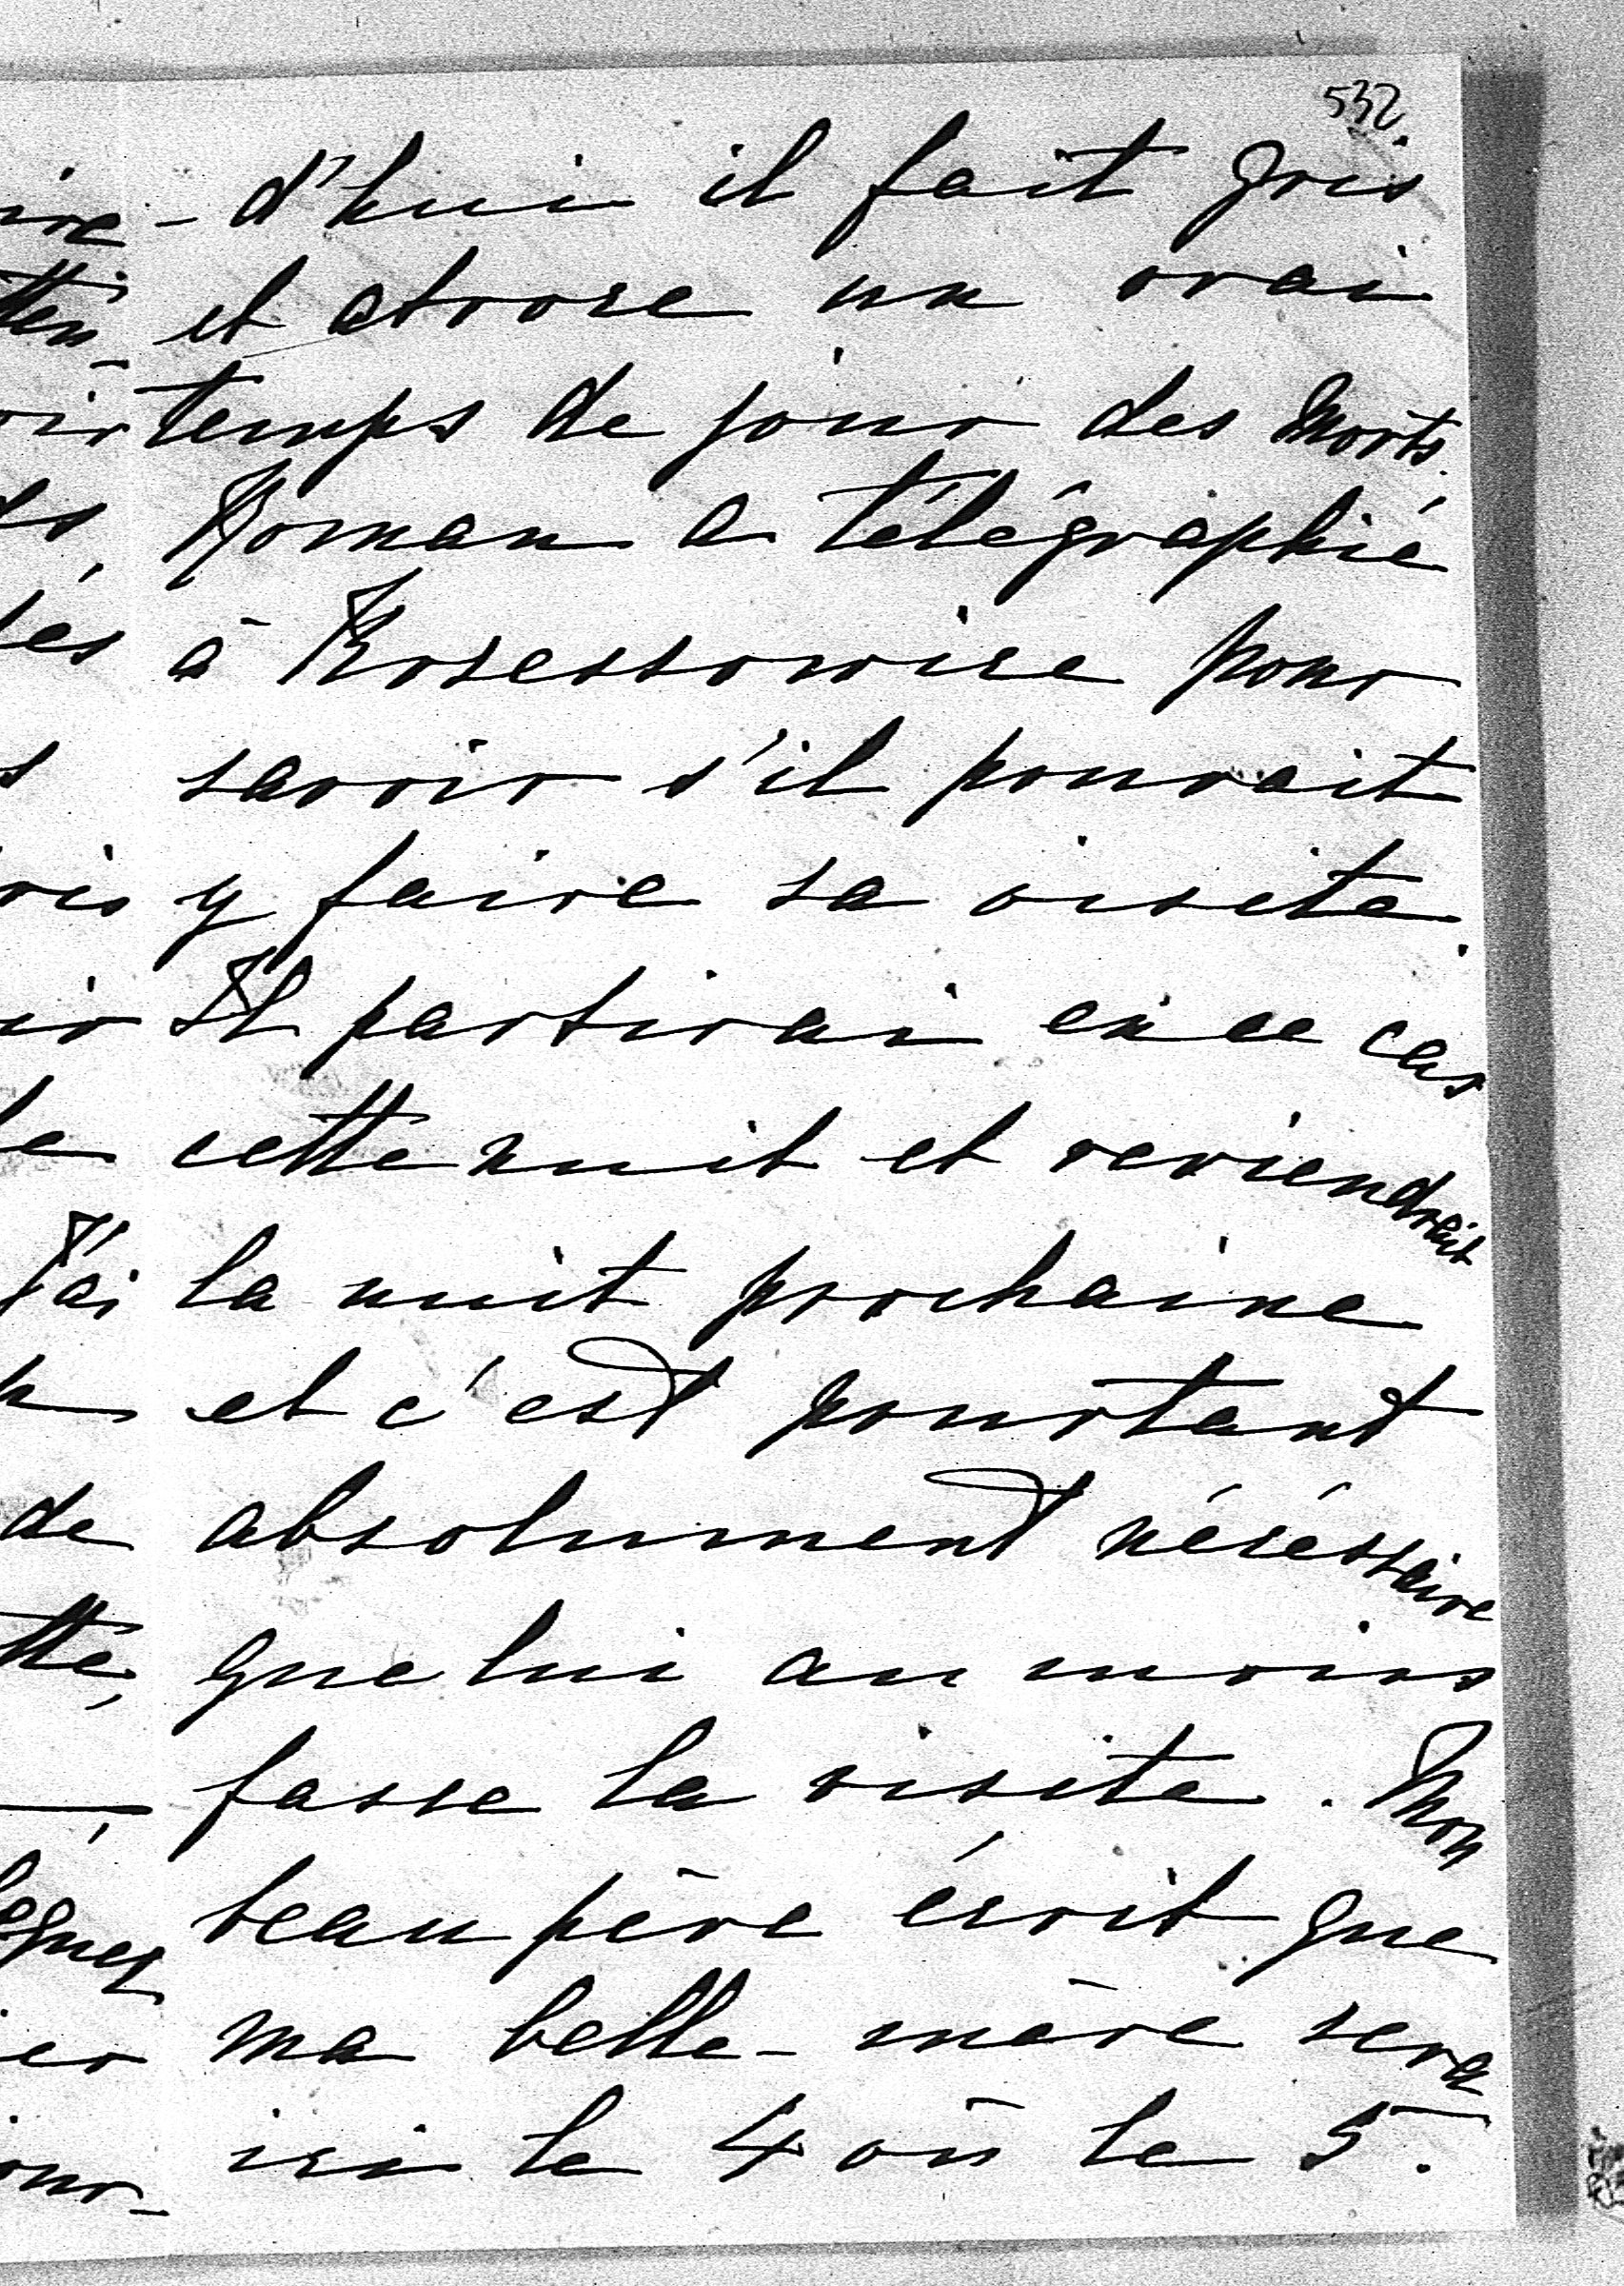 532.
d'hui il fait gris
et atroce un vrai
temps de jour des Morts.
Roman a télégraphié
à pour
savoir s'il pourait
y faire sa visite.
Il partirai en ce cas
cette nuit et reviendrait
la nuit prochaine
et c'est pourtant
absolument nécéssaire
que lui au moins
fasse la visite. Mon
beau père écrit que
ma belle-mère sera
ici le 4 où le 5.